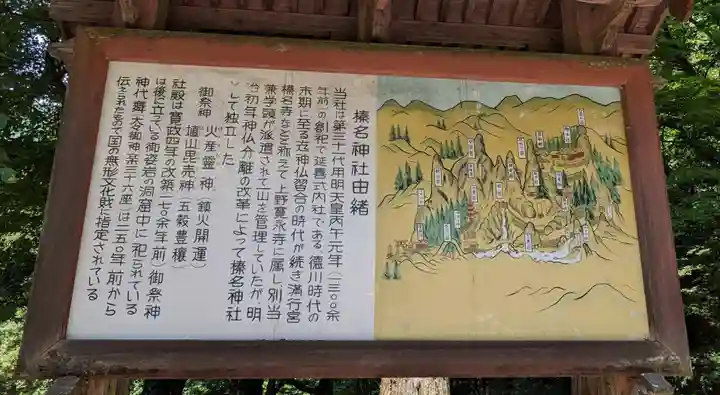 榛名神社由緒
当社は第三十一代用明天皇丙午元年(一三〇〇余
年前)の創祀で延喜式内社である 徳川時代の
末期に至る迄神仏習合の時代が続き満行宮
榛名寺などと称えて 上野寛永寺に属し別当
兼学頭が派遣されて山を管理していたが 明
治初年神仏分離の改革によって榛名神社
として独立した
御祭神 火産霊神(鎮火開運)
埴山毘売神(五穀豊穣)
社殿は寛政四年の改築(一七〇余年前)御祭神
は後に立っている御姿岩の洞窟中に祀られている
神代舞(太々御神楽三六座)は二五〇年前から
伝えられたもので国の無形文化財に指定されている